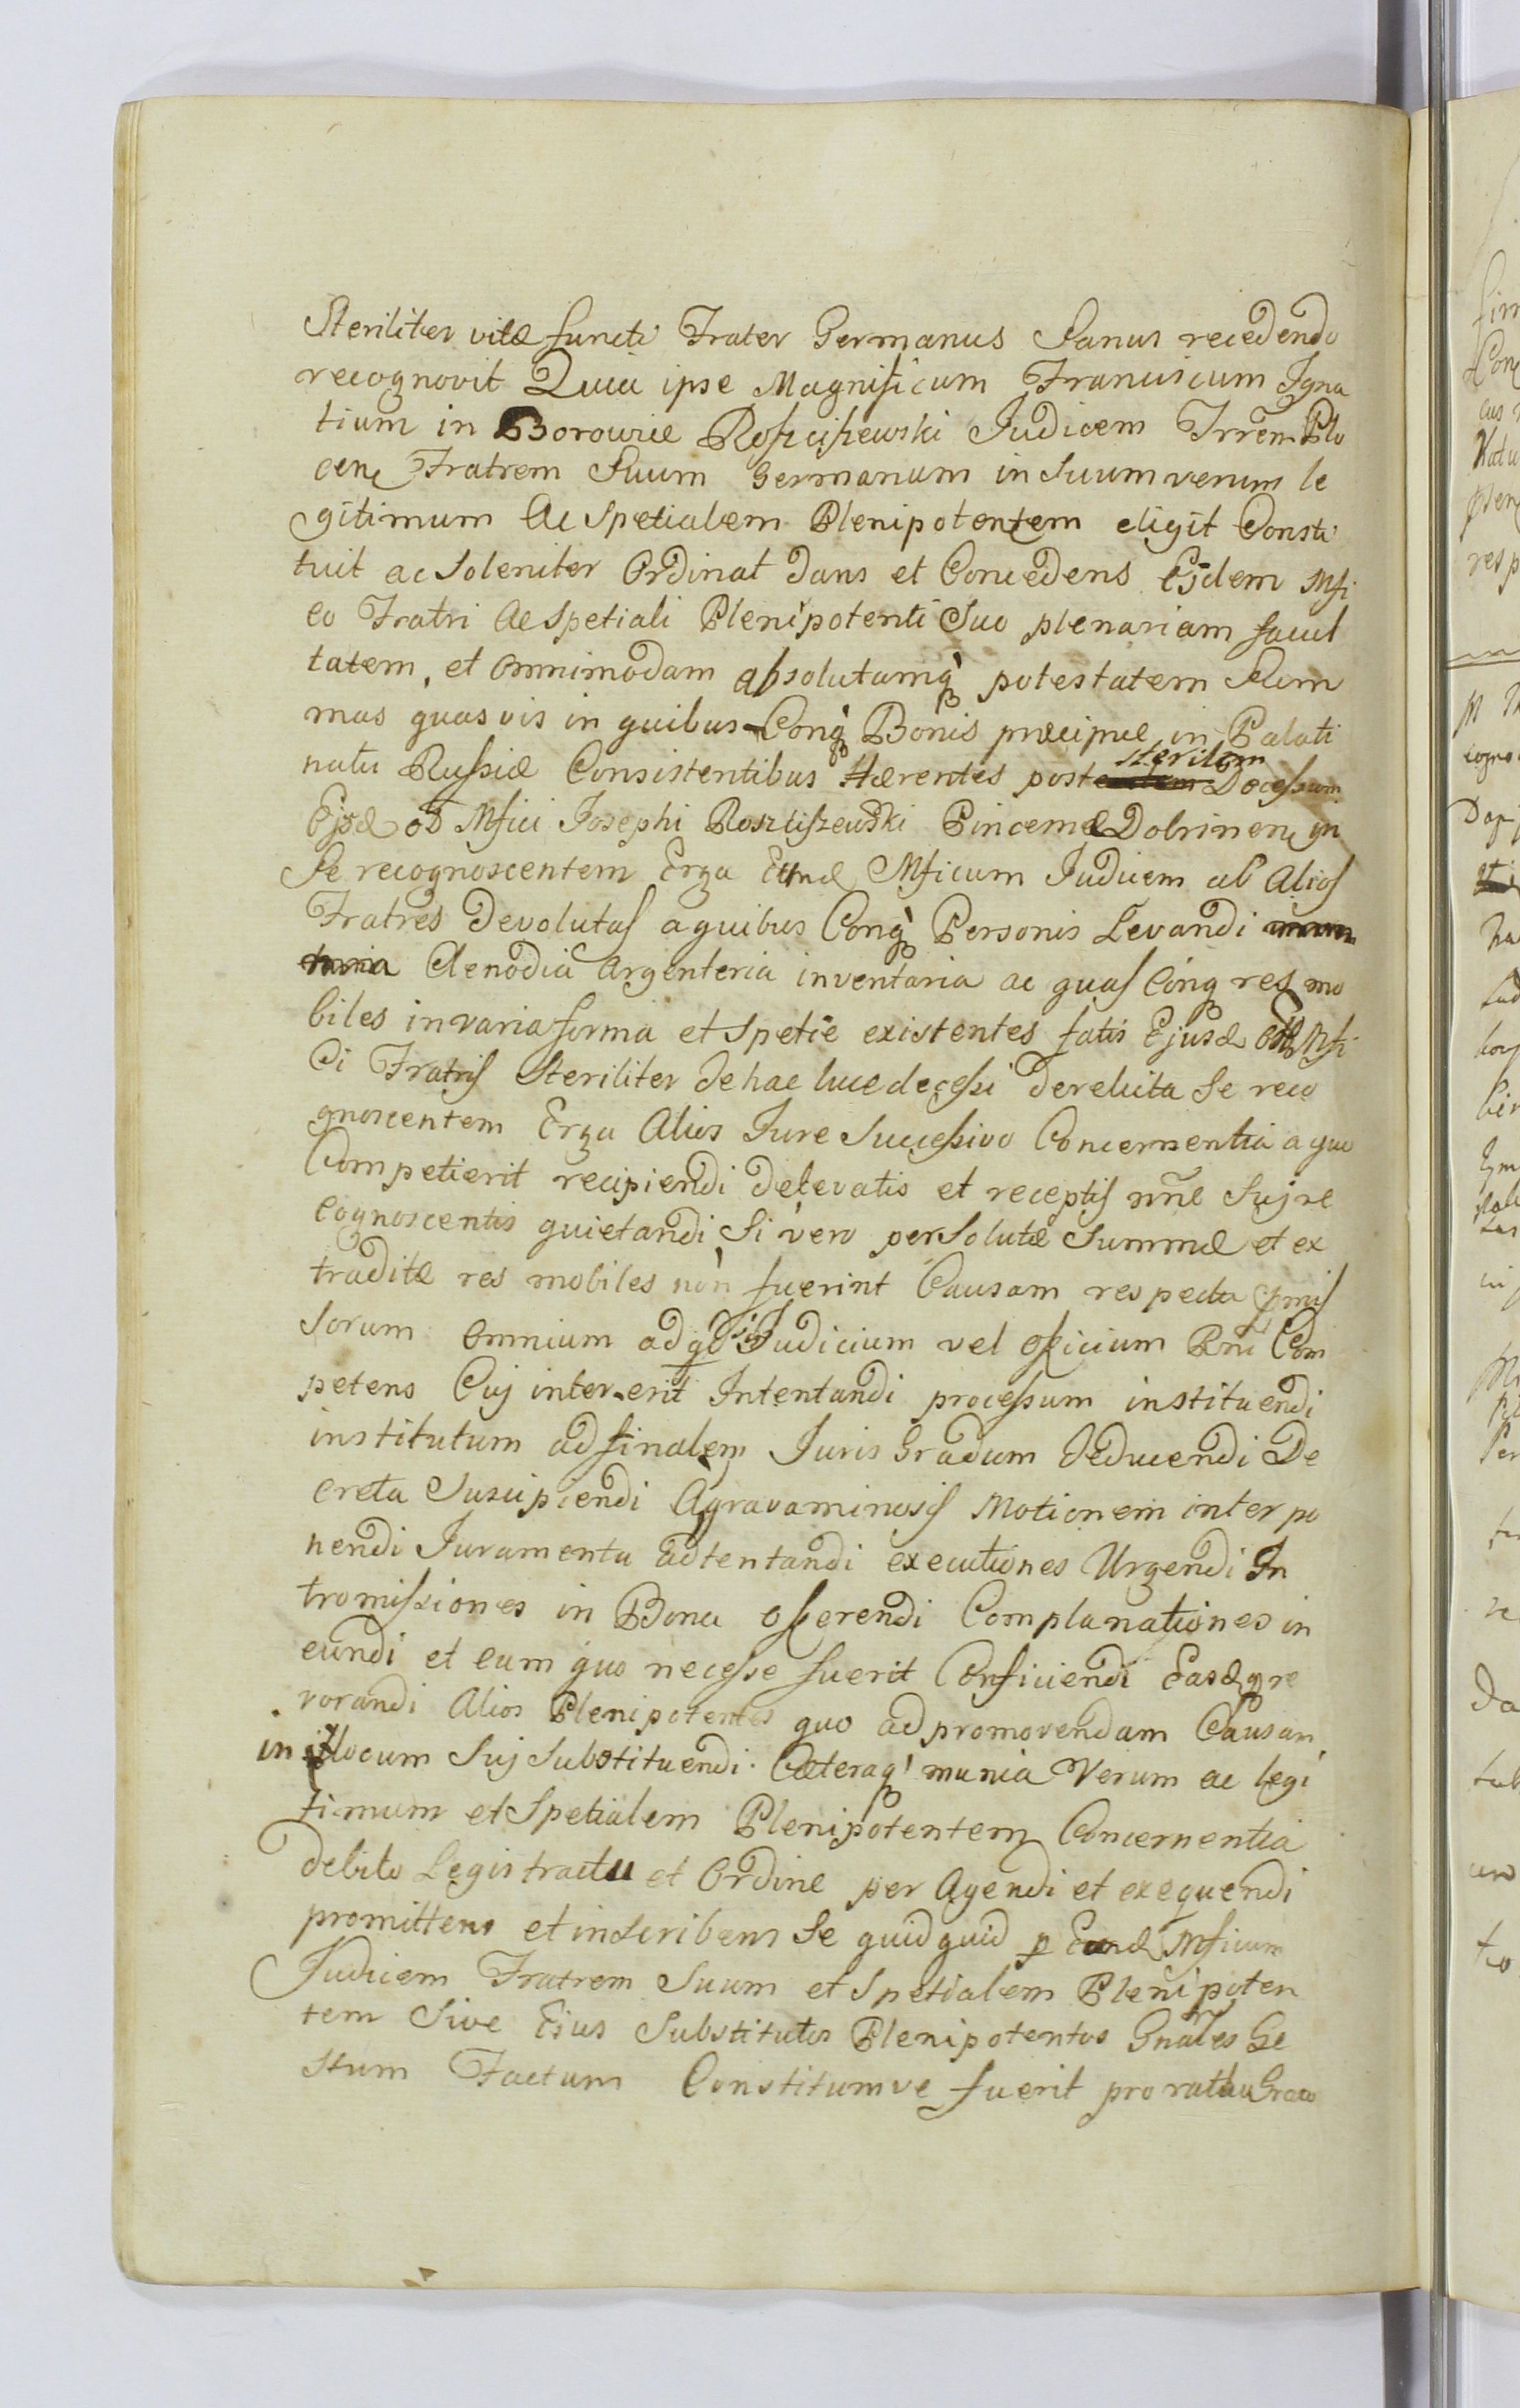 Steriliter vitæ functi Frater Germanus Sanus recedendo
recognovit Quia ipse Magnificum Franciscum Igna
tium in Borowice Rosciszewski Iudicem Trrem Plo
cen Fratrem Suum Germanum in Suum verum le
gitimum Ac Spetialem Plenipotentem eligit Consti
tuit ac Soleniter Ordinat Dans et Concedens Ejdem Mfi
co Fratri Ac Spetiali Plenipotenti Suo plenariam facul
tatem, et omnimodam absolutamq potestatem Sum
mas quasvis in quibus Conq Bonis præcipue in Palati
natu Russiæ Consistentibus Hærentes post sterilem Decessum
Ejsd old Mfici Josephi Rosciszewski Pincernæ Dobrinen in
Se recognoscentem Erga Eund Mficum Iudicem ab Alios
Fratres Devolutas a quibus Conq Personis Levandi
Clenodia Argenteria inventaria ac quas Conq res mo
biles in varia forma et Spetie existentes fatis Ejusd Mfi
ci Fratris Steriliter de hac luce decessi derelicta Se reco
gnoscentem Erga Alios Iure Successivo Concernentia a quo
Competierit recipiendi de levatis et receptis nne Suj re
cognoscentis quietandi Si vero persolutæ Summæ et ex
traditæ res mobiles non fuerint Causam respectu pmis
sorum omnium ad qdvis Iudicium vel officium Rni Com
petens Cuj intererit Intentandi processum instituendi
institutum ad finalem Iuris Gradum deducendi De
creta Suscipiendi Agravaminosis Motionem interpo
nendi Iuramenta adtentandi executiones Urgendi In
tromissiones in Bona offerendi Complanationes in
eundi et cum quo necesse fuerit Conficiendi Easdq re
vorandi Alios Plenipotentes quo ad promovendam Causam
in locum Suj Substituendi. Cæteraq munia Verum ac legi
timum et Spetialem Plenipotentem Concernentia
debito Legis tractu et Ordine per Agendi et exequendi
promittens et inscribens Se quid quid p Eund Mficum
Iudicem Fratrem Suum et Spetialem Plenipoten
tem Sive Ejus Substitutos Plenipotentos Gnales Ge
stum Factum Constitumve fuerit pro rato Grato